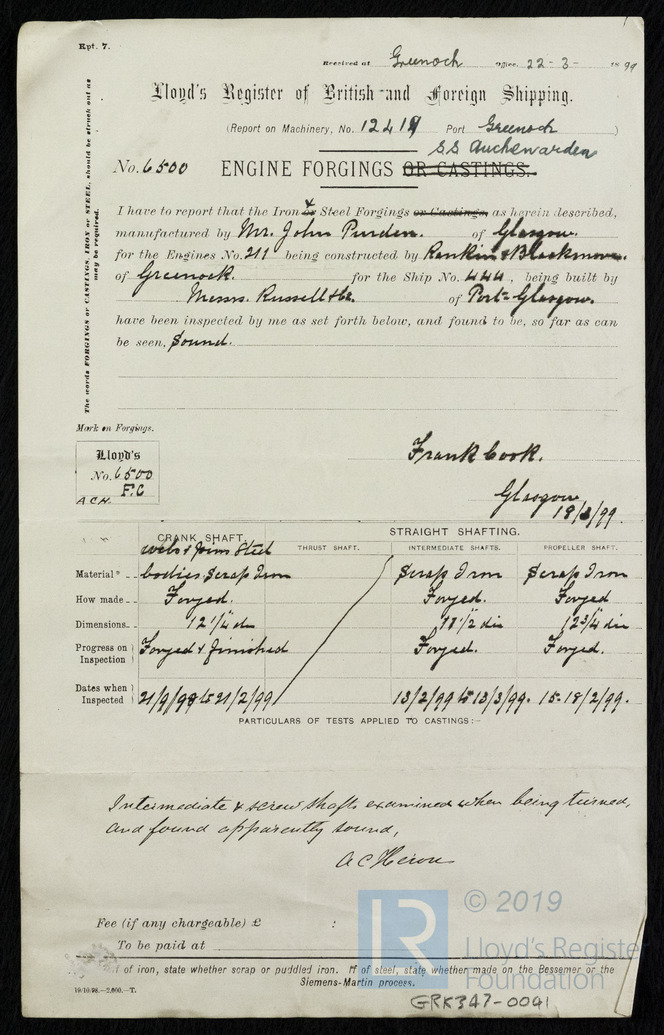 Rpt. 7.
Received at Greenock Office. 22-3- 1899
Lloyd's Register of British and Foreign Shipping.
(Report on Machinery, No. 12419 Port Greenock )
S.S Auchenarden
No. 6500 ENGINE FORGINGS OR CASTINGS.
I have to report that the Iron & or Steel Forgings or Castings, as herein described,
manufactured by Mr. John Purden. of Glasgow.
for the Engines No. 211 being constructed by Rankin & Blackmore.
of Greenock. for the Ship No. 444, being built by
Messrs. Russell & Co. of Port-Glasgow.
have been inspected by me as set forth below, and found to be, so far as can
be seen, Sound.
The words FORGINGS or CASTINGS, IRON or STEEL, should be struck out as
may be required.
Mark on Forgings.
Lloyd's
No. 6500
F.C
A.C.H.
Frank Cook.
Glasgow
18/3/99.
CRANK SHAFT. STRAIGHT SHAFTING.
webs & pins Steel THRUST SHAFT. INTERMEDIATE SHAFTS. PROPELLER SHAFT.
Material* bodies Scrap Iron Scrap Iron Scrap Iron
How made Forged. Forged. Forged
Dimensions 12 1/4" dia 11 1/2" dia 12 3/4" dia
Progress on Inspection Forged & finished Forged. Forged.
Dates when Inspected 21/9/98 to 21/2/99 13/2/99 to 13/3/99. 15-18/2/99.
PARTICULARS OF TESTS APPLIED TO CASTINGS:-
Intermediate & screw shafts examined when being turned,
and found apparently sound,
A C Heron
Fee (if any chargeable) £ :
To be paid at
If of iron, state whether scrap or puddled iron. If of steel, state whether made on the Bessemer or the
Siemens-Martin process.
19/10/98.—2,600.—T.
GRK347-0041
© 2019
LR
Lloyd's Register
Foundation